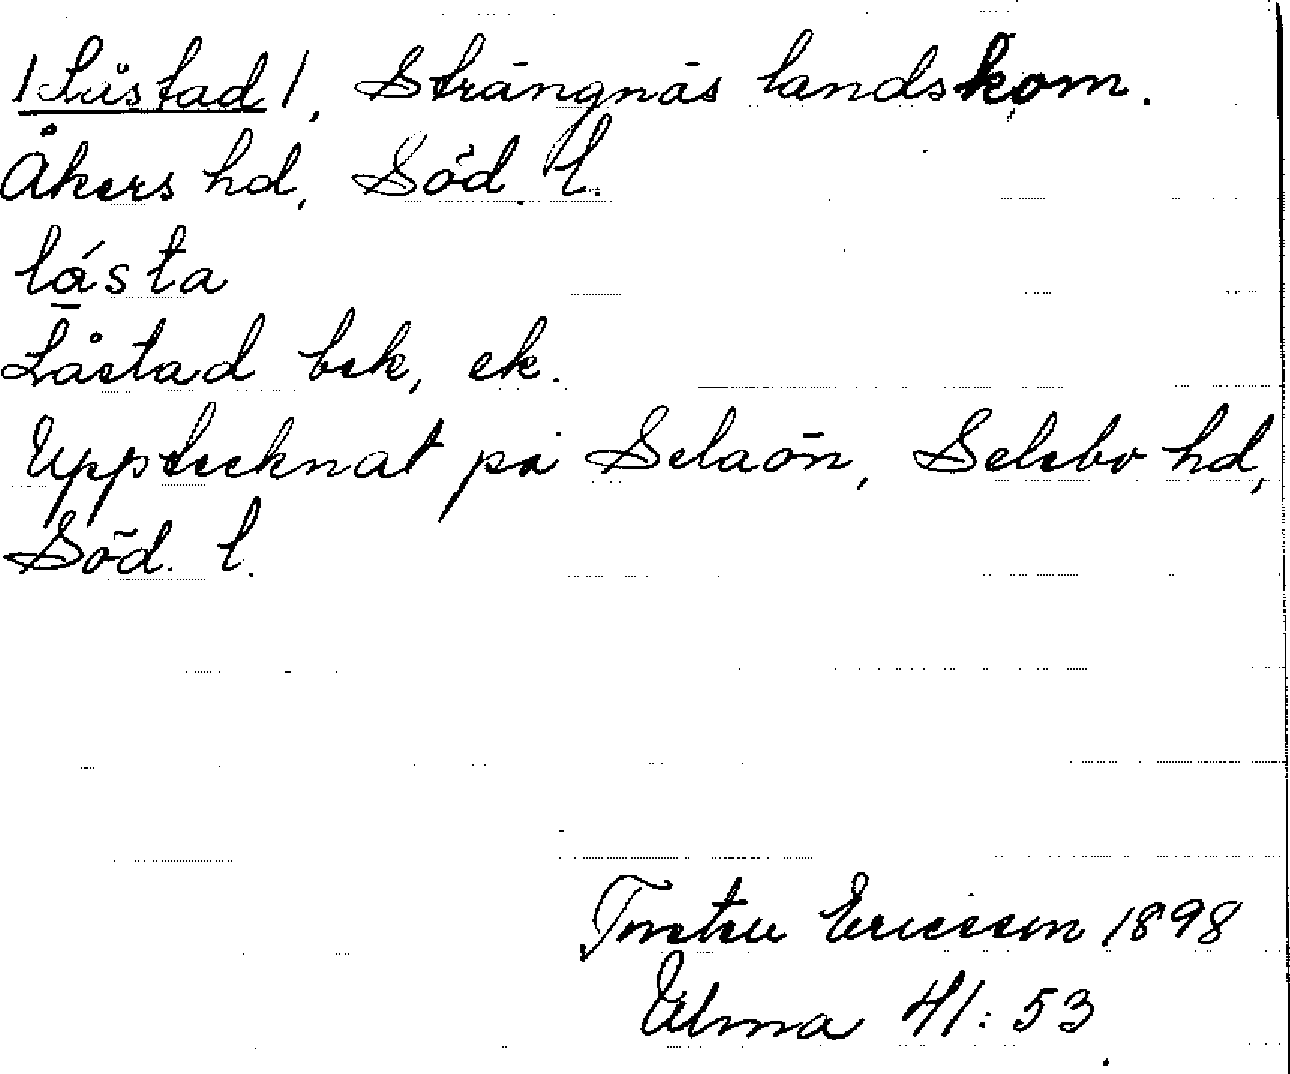 /Låstad/, Strängnäs landskom.
Åkers hd, Söd. l.
lás̱ta
Låstad bek, ek.
Upptecknat på Selaön, Selebo hd,
Söd. l.
Torsten Ericsson 1898
Ulma 41:53